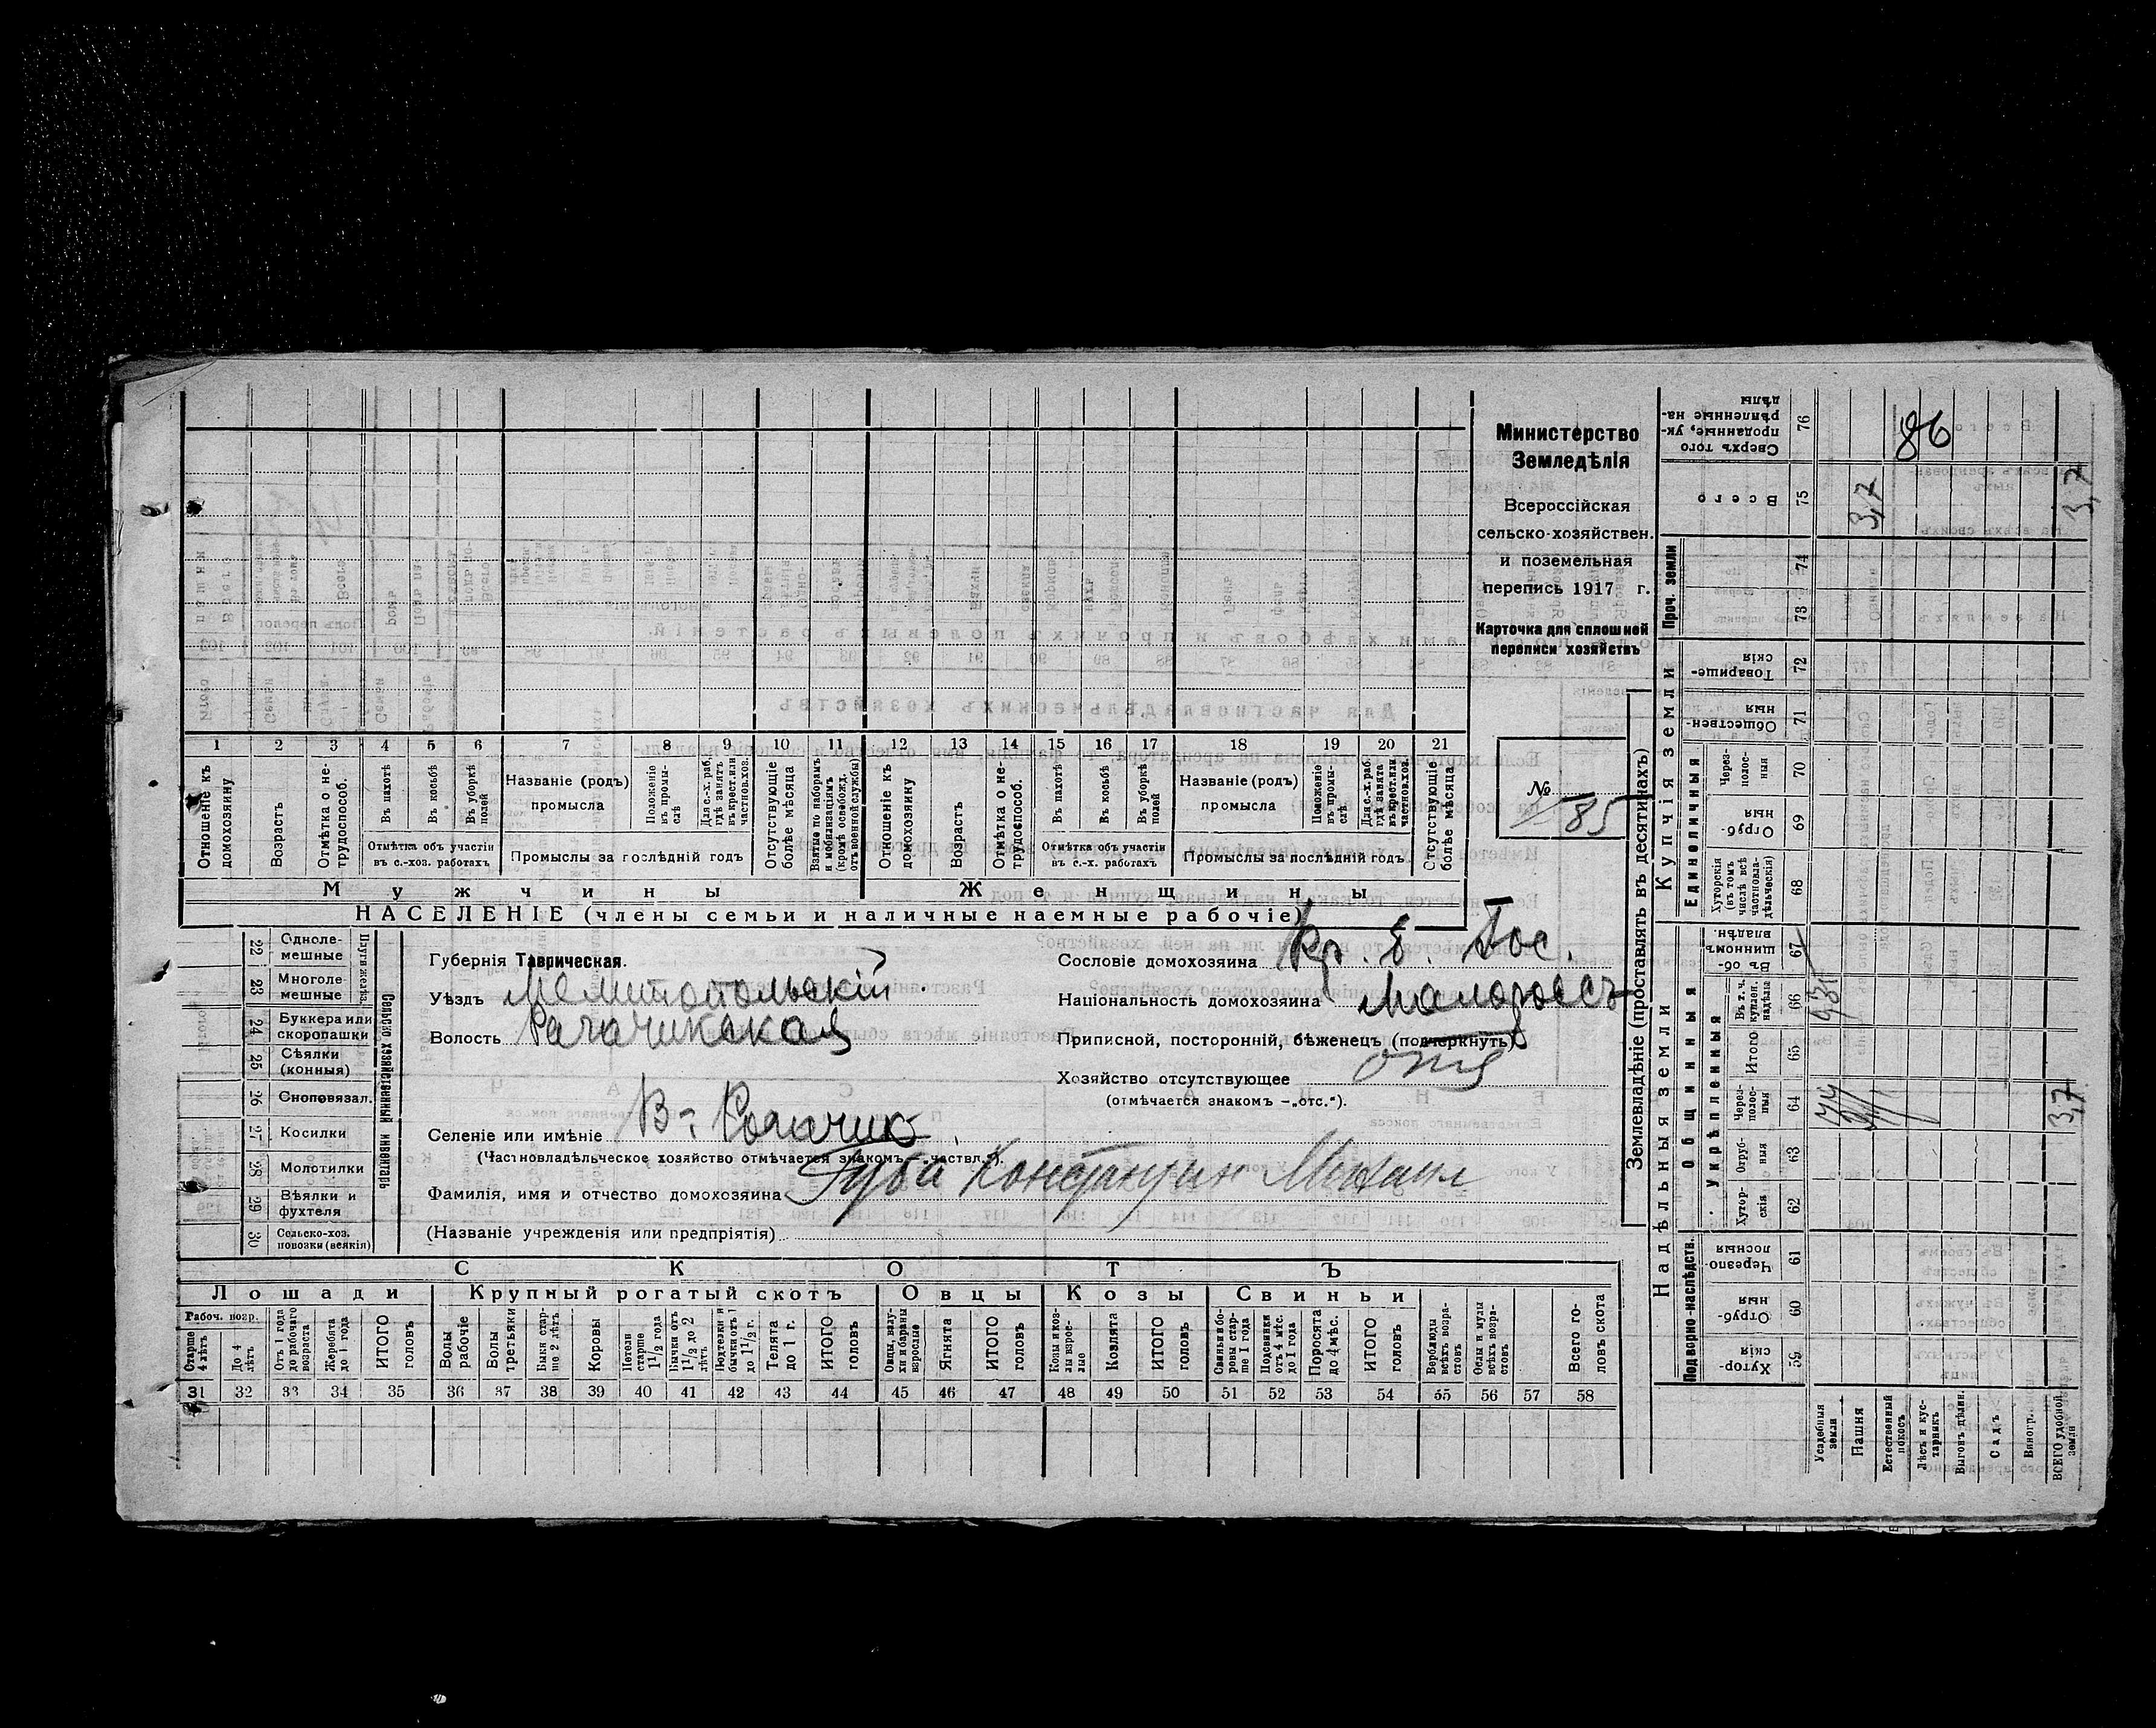 Министерство
Земледѣлія
Всероссійская
сельско-хозяйствен.
и поземельная
перепись 1917 г.
Карточка для сплошной
переписи хозяйствъ
№
185
86
1 2 3 4 5 6 7 8 9 10 11 12 13 14 15 16 17 18 19 20 21
Отношеніе къ домохозяину
Возрастъ
Отмѣтка о нетрудоспособ.
Въ пахотѣ
Въ косьбѣ
Въ уборкѣ полей
Отмѣтка объ участіи
въ с.-хоз. работахъ
Названіе (родъ)
промысла
Положеніе въ промыслѣ
Для с.-х. раб. гдѣ занятъ въ крест. или частнов. хоз.
Промыслы за послѣдній годъ
Отсутствующіе болѣе мѣсяца
Взятые по наборамъ и мобилизаціямъ (кромѣ освобожд. отъ военной службы)
Отношеніе къ домохозяину
Возрастъ
Отмѣтка о нетрудоспособ.
Въ пахотѣ
Въ косьбѣ
Въ уборкѣ полей
Отмѣтка объ участіи
въ с.-х. работахъ
Названіе (родъ)
промысла
Положеніе въ промыслѣ
Для с.-х. раб. гдѣ занята въ крест. или частнов. хоз.
Промыслы за послѣдній годъ
Отсутствующіе болѣе мѣсяца
Мужчины Женщины
НАСЕЛЕНІЕ (члены семьи и наличные наемные рабочіе)
Сельско-хозяйственный инвентарь
22 Однолемешные
23 Многолемешные
24 Буккера или скоропашки
25 Сѣялки (конныя)
26 Сноповязал.
27 Косилки
28 Молотилки
29 Вѣялки и фухтеля
30 Сельско-хоз. повозки (всякія)
Губернія Таврическая.
Уѣздъ Мелитопольскій
Волость Рагачикская
Селеніе или имѣніе В-Рогачик
(Частновладѣльческое хозяйство отмѣчается знакомъ-„частвл.“).
Фамилія, имя и отчество домохозяина Губа Константин Михаил
(Названіе учрежденія или предпріятія)
Сословіе домохозяина Кр. б. Гос.
Національность домохозяина Малороссъ
Приписной, посторонній, бѣженецъ (подчеркнуть)
Хозяйство отсутствующее
(отмѣчается знакомъ -„отс.“).
СКОТЪ
Лошади Крупный рогатый скотъ Овцы Козы Свиньи
Рабоч. возр.
Старше 4 лѣтъ
До 4 лѣтъ
Отъ 1 года до рабочаго возраста
Жеребята до 1 года
ИТОГО головъ
Волы рабочіе
Волы третьяки
Быки старше 2 лѣтъ
Коровы
Нетели старше 1 1/2 года
Бычки отъ 1 1/2 до 2 лѣтъ
Подтелки и бычки отъ 1 до 1 1/2 г.
Телята до 1 г.
ИТОГО головъ
Овцы, валухи и бараны взрослые
Ягнята
ИТОГО головъ
Козы и козлы взрослые
Козлята
ИТОГО головъ
Свиньи и боровы старше 1 года
Подсвинки отъ 4 мѣс. до 1 года
Поросята до 4 мѣс.
ИТОГО головъ
Верблюды всѣхъ возрастовъ
Ослы и мулы всѣхъ возрастовъ
Всего головъ скота
31 32 33 34 35 36 37 38 39 40 41 42 43 44 45 46 47 48 49 50 51 52 53 54 55 56 57 58
Землевладѣніе (проставлять въ десятинахъ)
Надѣльныя земли
Купчія земли
Подворно-наслѣдств.
Общинныя
Укрѣпленныя
Единоличныя
Проч. земли
Хуторскія 59
Отрубныя 60
Черезполосныя 61
Хуторскія 62
Отрубныя 63
Черезполосныя 64
Итого 65
Въ т. ч. куплен. надѣла 66
Въ общинномъ владѣн. 67
Хуторскія (въ томъ числѣ всѣ частновладѣльческія) 68
Отрубныя 69
Черезполосныя 70
Общественныя 71
Товарищескія 72
73
74
Всего 75
Сверхъ того проданные, укрѣпленные надѣлы 76
Усадебныя земли
Пашня
Естественный покосъ
Лѣсъ и кустарникъ
Выгонъ дѣлин.
Садъ
Виногр.
ВСЕГО удобной земли
3,7
3,7
3,7